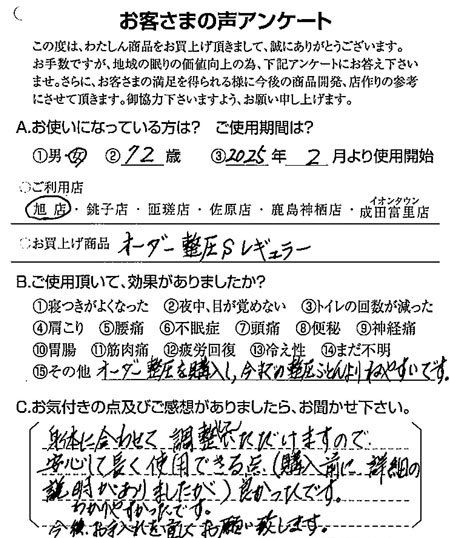 お客さまの声アンケート
この度は、わたしん商品をお買上げ頂きまして、誠にありがとうございます。
お手数ですが、地域の眠りの価値向上の為、下記アンケートにお答え下さい
ませ。さらに、お客さまの満足を得られる様に今後の商品開発、店作りの参考
にさせて頂きます。御協力下さいますよう、お願い申し上げます。
A.お使いになっている方は? ご使用期間は?
①男・女 ②72歳 ③2025年 2月より使用開始
○ご利用店
イオンタウン
旭店・銚子店・匝瑳店・佐原店・鹿島神栖店・成田富里店
○お買上げ商品 オーダー整圧Sレギュラー
B.ご使用頂いて、効果がありましたか?
①寝つきがよくなった ②夜中、目が覚めない ③トイレの回数が減った
④肩こり ⑤腰痛 ⑥不眠症 ⑦頭痛 ⑧便秘 ⑨神経痛
⑩胃腸 ⑪筋肉痛 ⑫疲労回復 ⑬冷え性 ⑭まだ不明
⑮その他 オーダー整圧を購入し、今までの整圧ふとんよりねやすいです。
C.お気付きの点及びご感想がありましたら、お聞かせ下さい。
身体に合わせて調整していただけますので
安心して長く使用できる点(購入前に詳細の
説明がありましたが)良かったです。
わかりやすかったです。
今後、お手入れを宜しくお願い致します。